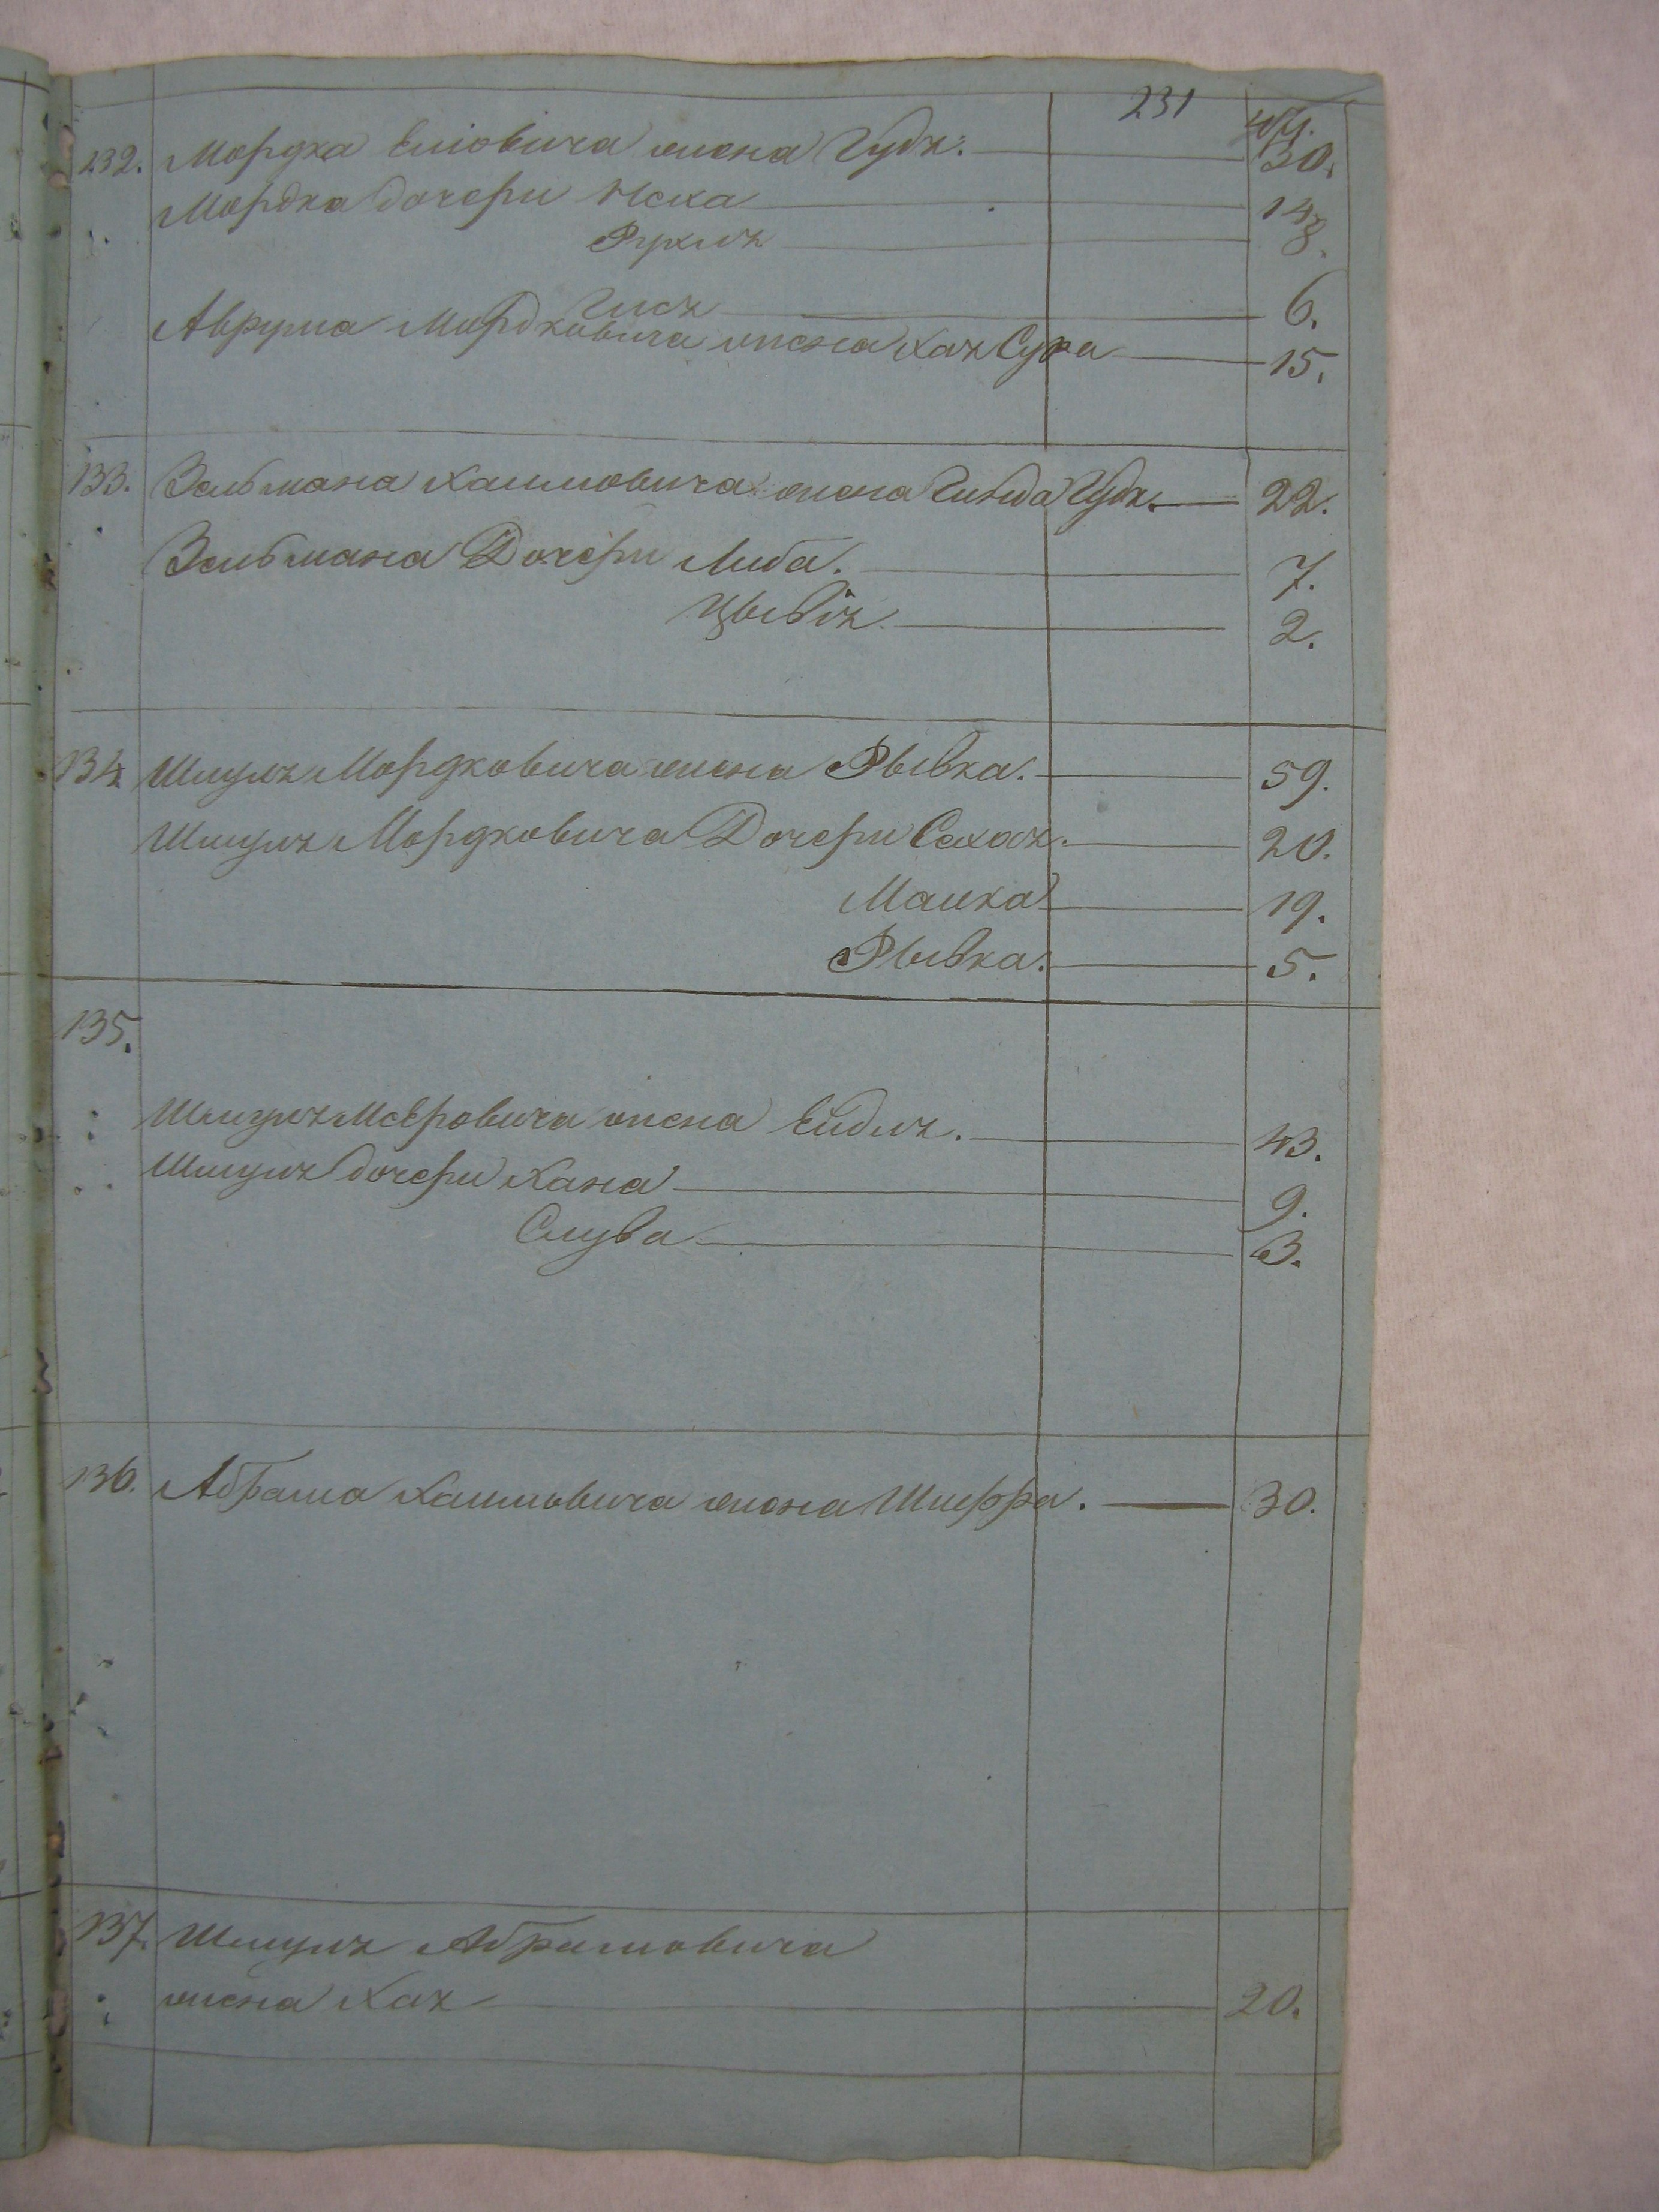 231
132. Мордха Еліовича жена Гудя. 30.
Мордка дочери Неха 14
Рухля 8.
Гися 6.
Аврума Мордковича жена Хая Сура 15.
133. Зельмана Хаимовича жена Гинда Гудя. 22.
Зельмана Дочери Либа. 7.
Цывія 2.
134 Шмуля Мордковича жена Рывка. 59.
Шмуля Мордковича Дочери Сахая. 20.
Малка 19.
Рывка. 5.
135.
Шмуля Меeровича жена Ейдля. 43.
Шмуля дочери Хана 9.
Слува 3.
136. Абрама Хаимовича жена Шифра. 30.
137. Шмуля Абрамовича
жена Хая 20.